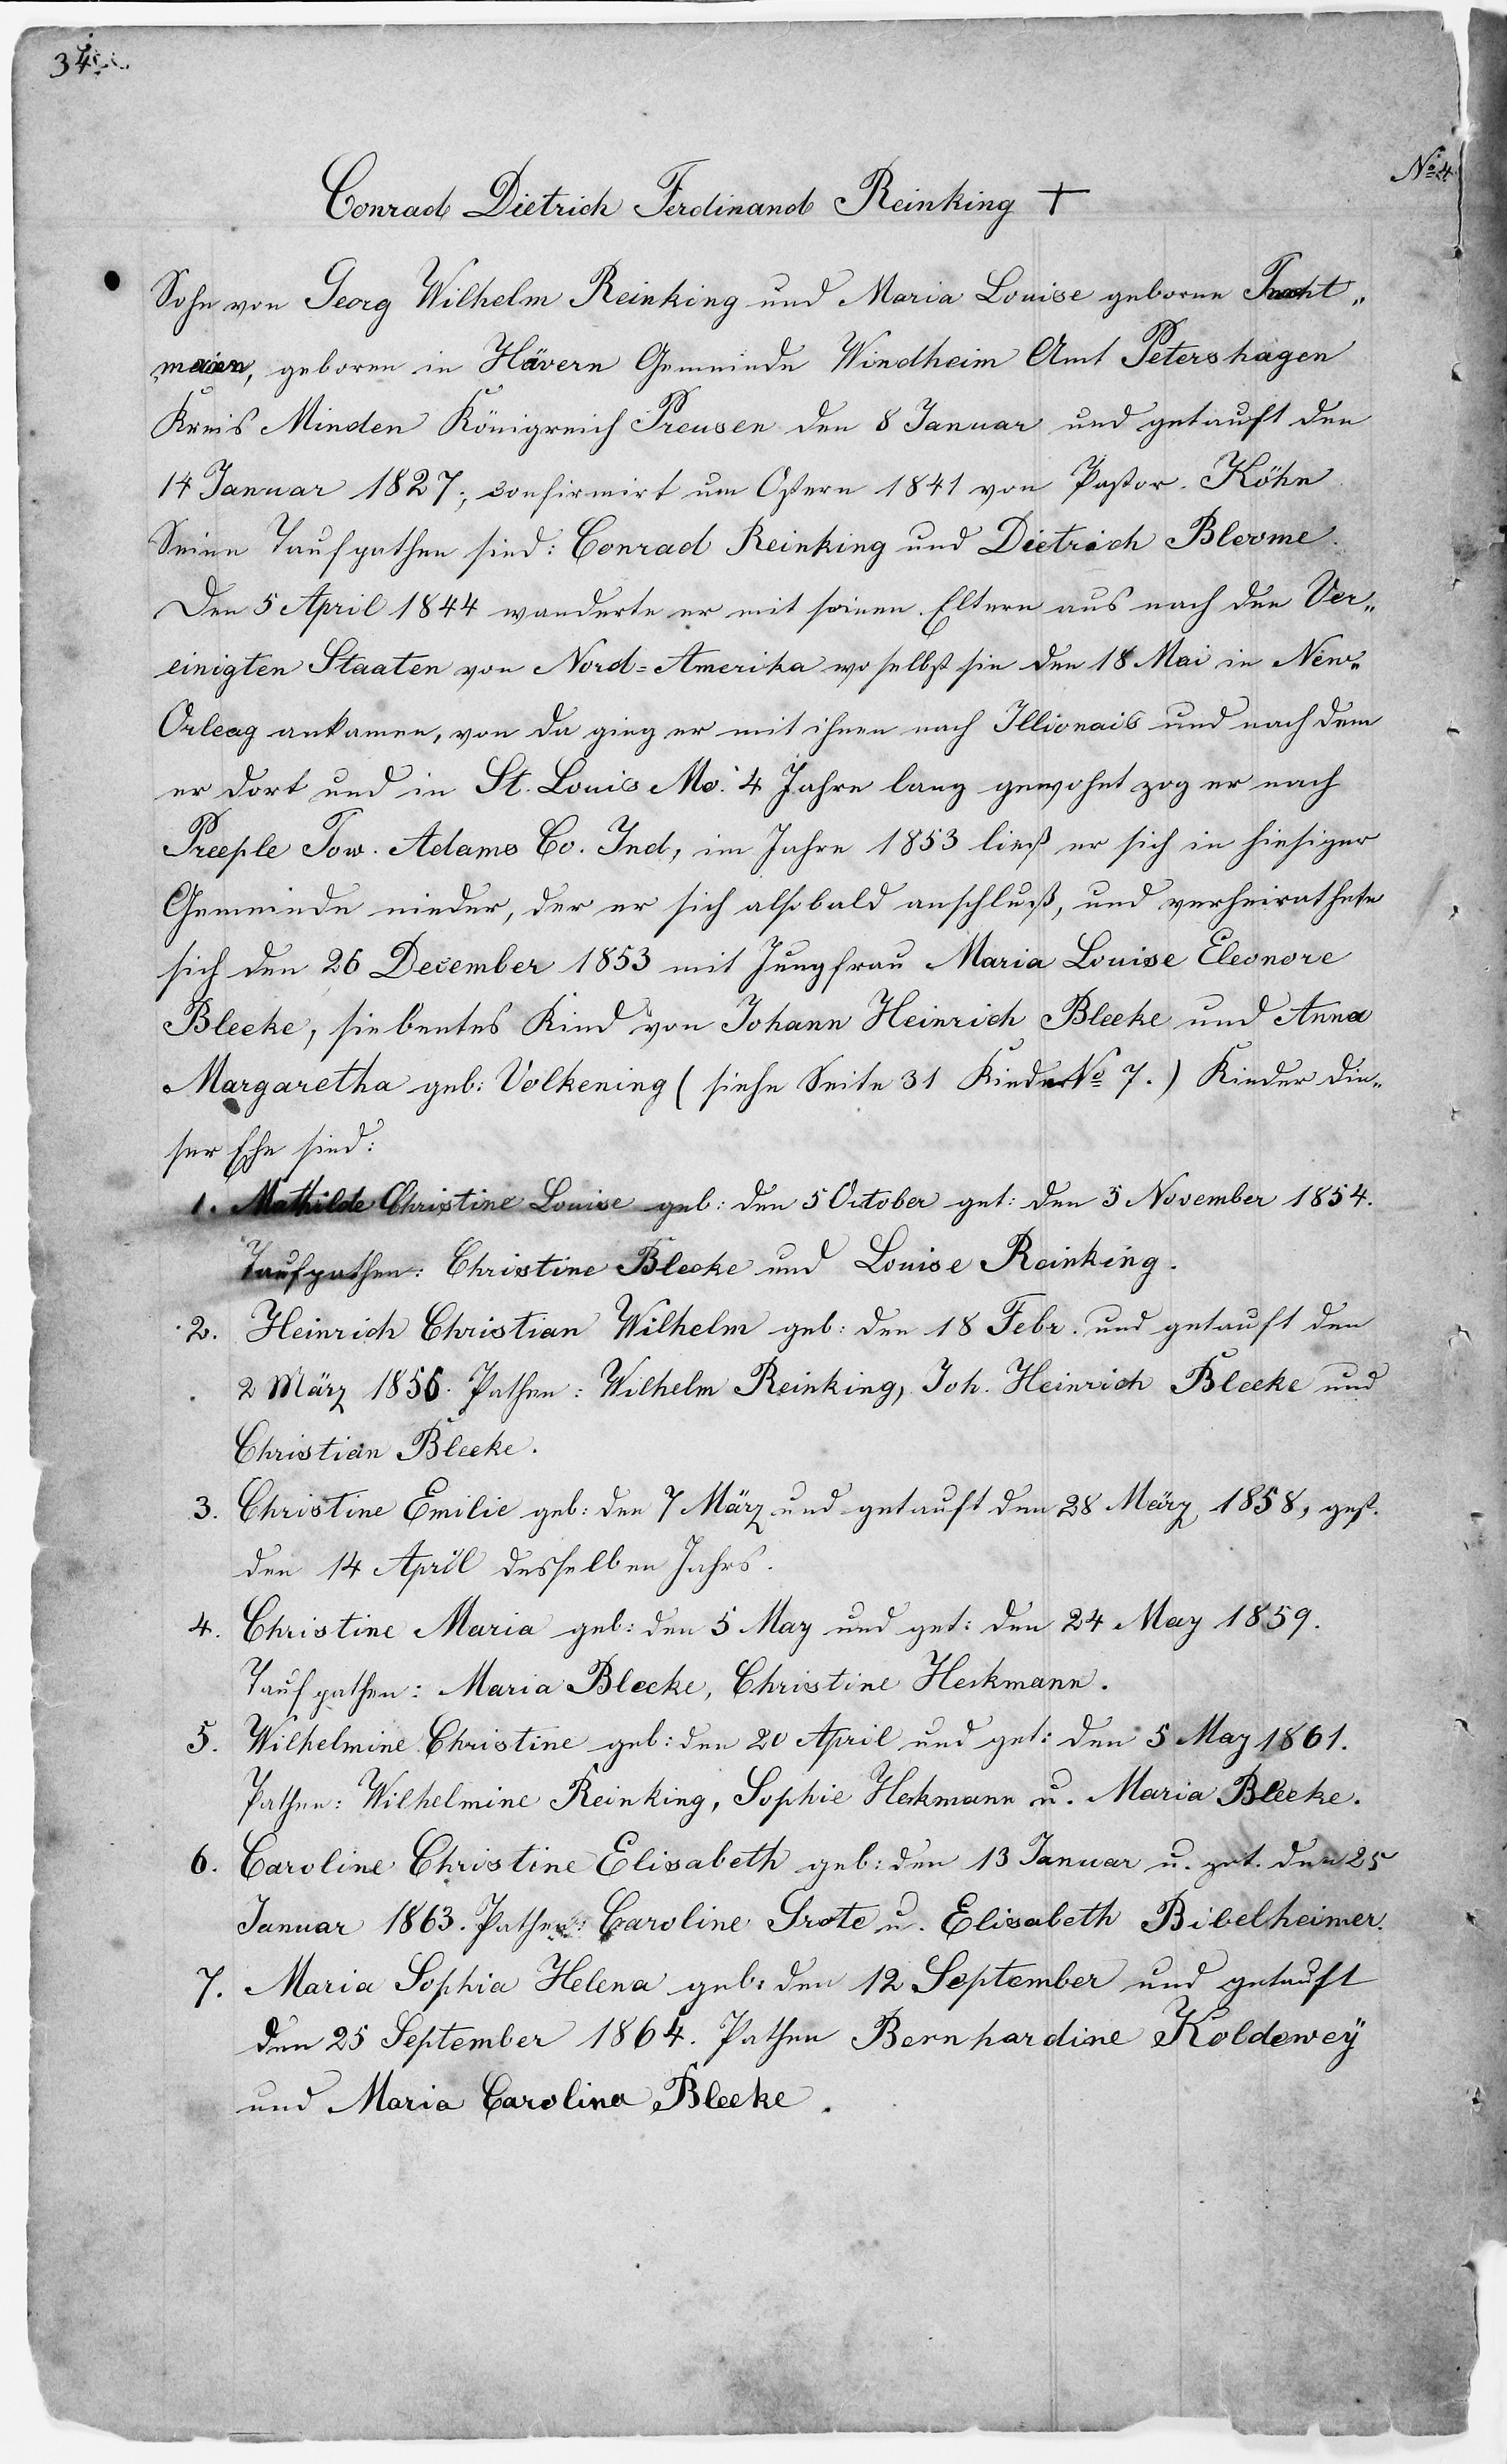 34
No 4
Conrad Dietrich Ferdinand Reinking †
Sohn von Georg Wilhelm Reinking und Maria Louise geborne Tracht„
meier, geboren in Hävern Gemeinde Windheim Amt Petershagen
Kreis Minden Königreich Preusen den 8 Januar und getauft den
14 Januar 1827; confirmirt um Ostern 1841 von Pastor Köhn
Seine Taufpathen sind: Conrad Reinking und Dietrich Bleome.
Den 5 April 1844 wanderte er mit seinen Eltern aus nach den Ver„
einigten Staaten von Nord=Amerika woselbst sie den 18 Mai in New„
Orleag ankamen, von da ging er mit ihnen nach Illionais und nach dem
er dort und in St. Louis Mo. 4 Jahre lang gewohnt zog er nach
Preeple Tow. Adams Co. Ind, im Jahre 1853 ließ er sich in hiesiger
Gemeinde nieder, der er sich alsobald anschluß, und verheirathete
sich den 26 December 1853 mit Jungfrau Maria Louise Eleonore
Bleeke, siebentes Kind von Johann Heinrich Bleeke und Anna
Margaretha geb: Volkening (siehe Seite 31 Kinder No 7.) Kinder die„
ser Ehe sind:
1. Mathilde Christine Louise geb: den 5 October get: den 5 November 1854.
Taufpathen: Christine Bleeke und Louise Reinking.
2. Heinrich Christian Wilhelm geb: den 18 Febr. und getauft den
2 März 1856. Pathen: Wilhelm Reinking, Joh. Heinrich Bleeke und
Christian Bleeke.
3. Christine Emilie geb: den 7 März und getauft den 28 März 1858, gest.
den 14 April desselben Jahrs.
4. Christine Maria geb: den 5 May und get: den 24 May 1859.
Taufpathen: Maria Bleeke, Christine Heckmann.
5. Wilhelmine Christine geb: den 20 April und get: den 5 May 1861.
Pathen: Wilhelmine Reinking, Sophie Heckmann u. Maria Bleeke.
6. Caroline Christine Elisabeth geb: den 13 Januar u. get. den 25
Januar 1863. Pathen: Caroline Grote u. Elisabeth Bibelheimer.
7. Maria Sophia Helena geb: den 12 September und getauft
den 25 September 1864. Pathen Bernhardine Koldewey
und Maria Carolina Bleeke.